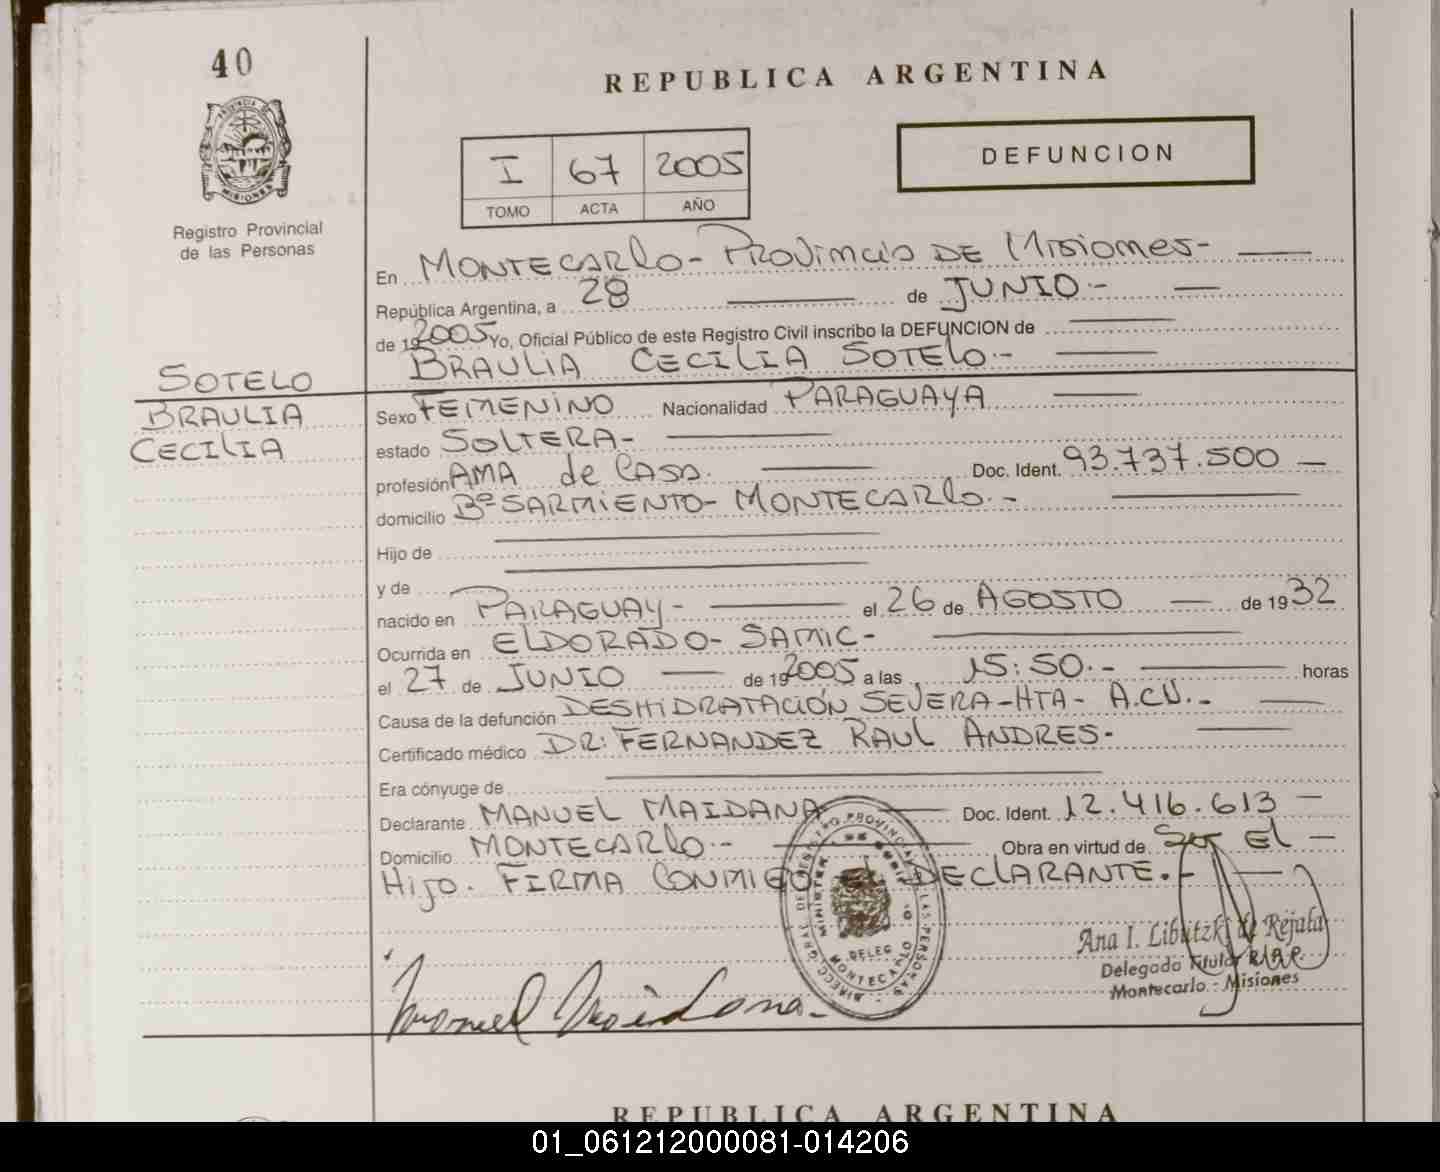 40
REPUBLICA ARGENTINA
I 67 2005
TOMO ACTA AÑO
DEFUNCION
Registro Provincial
de las Personas
En MONTECARLO - PROVINCIA DE MISIONES -
República Argentina, a 28 de JUNIO.-
de 19 2005 Yo, Oficial Público de este Registro Civil inscribo la DEFUNCION de
BRAULIA CECILIA SOTELO.-
SOTELO
BRAULIA
CECILIA
Sexo FEMENINO Nacionalidad PARAGUAYA
estado SOLTERA-
profesión AMA de CASA. Doc. Ident. 93.737.500 —
domicilio Bº SARMIENTO- MONTECARLO.-
Hijo de
y de
nacido en PARAGUAY- el 26 de AGOSTO — de 19 32
Ocurrida en ELDORADO- SAMIC-
el 27 de JUNIO — de 19 2005 a las 15:50.- horas
Causa de la defunción DESHIDRATACIÓN SEVERA-HTA- A.C.V.-
Certificado médico DR: FERNANDEZ RAUL ANDRES-
Era cónyuge de
Declarante MANUEL MAIDANA Doc. Ident. 12.416.613 —
Domicilio MONTECARLO.- Obra en virtud de Ser El —
Hijo. FIRMA CONMIGO DECLARANTE.-
Manuel Maidana.-
DELEG
MONTECARLO
Ana I. Libutzki de Rejala
Delegada Titular R.P.P.
Montecarlo - Misiones
REPUBLICA ARGENTINA
01_061212000081-014206